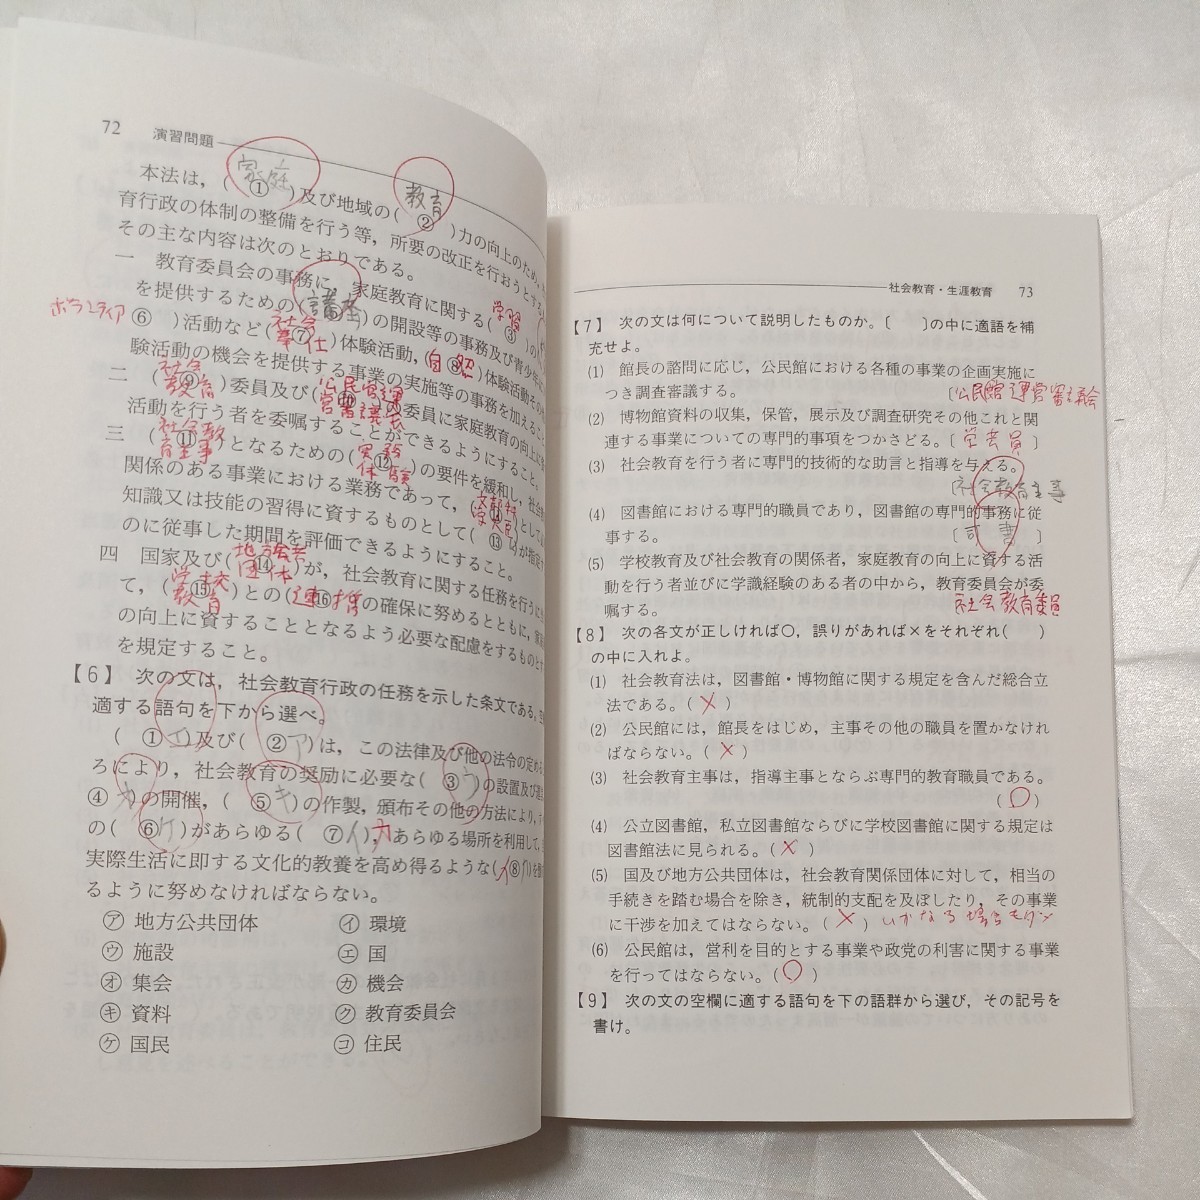 72 演習問題
本法は，（ 家庭 ① ）及び地域の（ 教育 ② ）力の向上のため，
育行政の体制の整備を行う等，所要の改正を行おうとする
その主な内容は次のとおりである。
一 教育委員会の事務に，家庭教育に関する（ 学習 ③ ）の
を提供するための（ 講座 ）の開設等の事務及び青少年に
ボランティア ⑥ ）活動など（ 社会奉仕 ⑦ ）体験活動，（ 自然 ⑧ ）体験活動その
験活動の機会を提供する事業の実施等の事務を加えること
二 （ 社会教育 ⑨ ）委員及び（ 公民館運営審議会 ⑩ ）の委員に家庭教育の向上に
活動を行う者を委嘱することができるようにすること。
三 （ 社会教育主事 ⑪ ）となるための（ 実務体験 ⑫ ）の要件を緩和し，社会教
関係のある事業における業務であって，（
知識又は技能の習得に資するものとして（ ⑬ ）が指定
のに従事した期間を評価できるようにすること。
四 国家及び（ 地方公共団体 ⑭ ）が，社会教育に関する任務を行うに
て，（ 学校教育 ⑮ ）との（ 連携 ⑯ ）の確保に努めるとともに，
の向上に資することとなるよう必要な配慮をするものと
を規定すること。
【6】 次の文は，社会教育行政の任務を示した条文である。
適する語句を下から選べ。
（ ①エ ）及び（ ②ア ）は，この法律及び他の法令の定め
ろにより，社会教育の奨励に必要な（ ③ウ ）の設置及び
④ ）の開催，（ ⑤キ ）の作製，頒布その他の方法により，
の（ ⑥ケ ）があらゆる（ ⑦ ），カ あらゆる場所を利用して，
実際生活に即する文化的教養を高め得るような（ イ ⑧ ）を
るように努めなければならない。
㋐ 地方公共団体 ㋑ 環境
㋒ 施設 ㋓ 国
㋔ 集会 ㋕ 機会
㋖ 資料 ㋗ 教育委員会
㋘ 国民 ㋙ 住民
社会教育・生涯教育 73
【7】 次の文は何について説明したものか。〔 〕の中に適語を補
充せよ。
(1) 館長の諮問に応じ，公民館における各種の事業の企画実施に
つき調査審議する。 〔公民館運営審議会
(2) 博物館資料の収集，保管，展示及び調査研究その他これと関
連する事業についての専門的事項をつかさどる。〔 学芸員 〕
(3) 社会教育を行う者に専門的技術的な助言と指導を与える。
〔社会教育主事
(4) 図書館における専門的職員であり，図書館の専門的事務に従
事する。 〔 司書 〕
(5) 学校教育及び社会教育の関係者，家庭教育の向上に資する活
動を行う者並びに学識経験のある者の中から，教育委員会が委
嘱する。 社会教育委員
【8】 次の各文が正しければ○，誤りがあれば×をそれぞれ（ ）
の中に入れよ。
(1) 社会教育法は，図書館・博物館に関する規定を含んだ総合立
法である。（ × ）
(2) 公民館には，館長をはじめ，主事その他の職員を置かなけれ
ばならない。（ × ）
(3) 社会教育主事は，指導主事とならぶ専門的教育職員である。
（ ○ ）
(4) 公立図書館，私立図書館ならびに学校図書館に関する規定は
図書館法に見られる。（ × ）
(5) 国及び地方公共団体は，社会教育関係団体に対して，相当の
手続きを踏む場合を除き，統制的支配を及ぼしたり，その事業
に干渉を加えてはならない。（ × ） いかなる場合モダメ
(6) 公民館は，営利を目的とする事業や政党の利害に関する事業
を行ってはならない。（ ○ ）
【9】 次の文の空欄に適する語句を下の語群から選び，その記号を
書け。